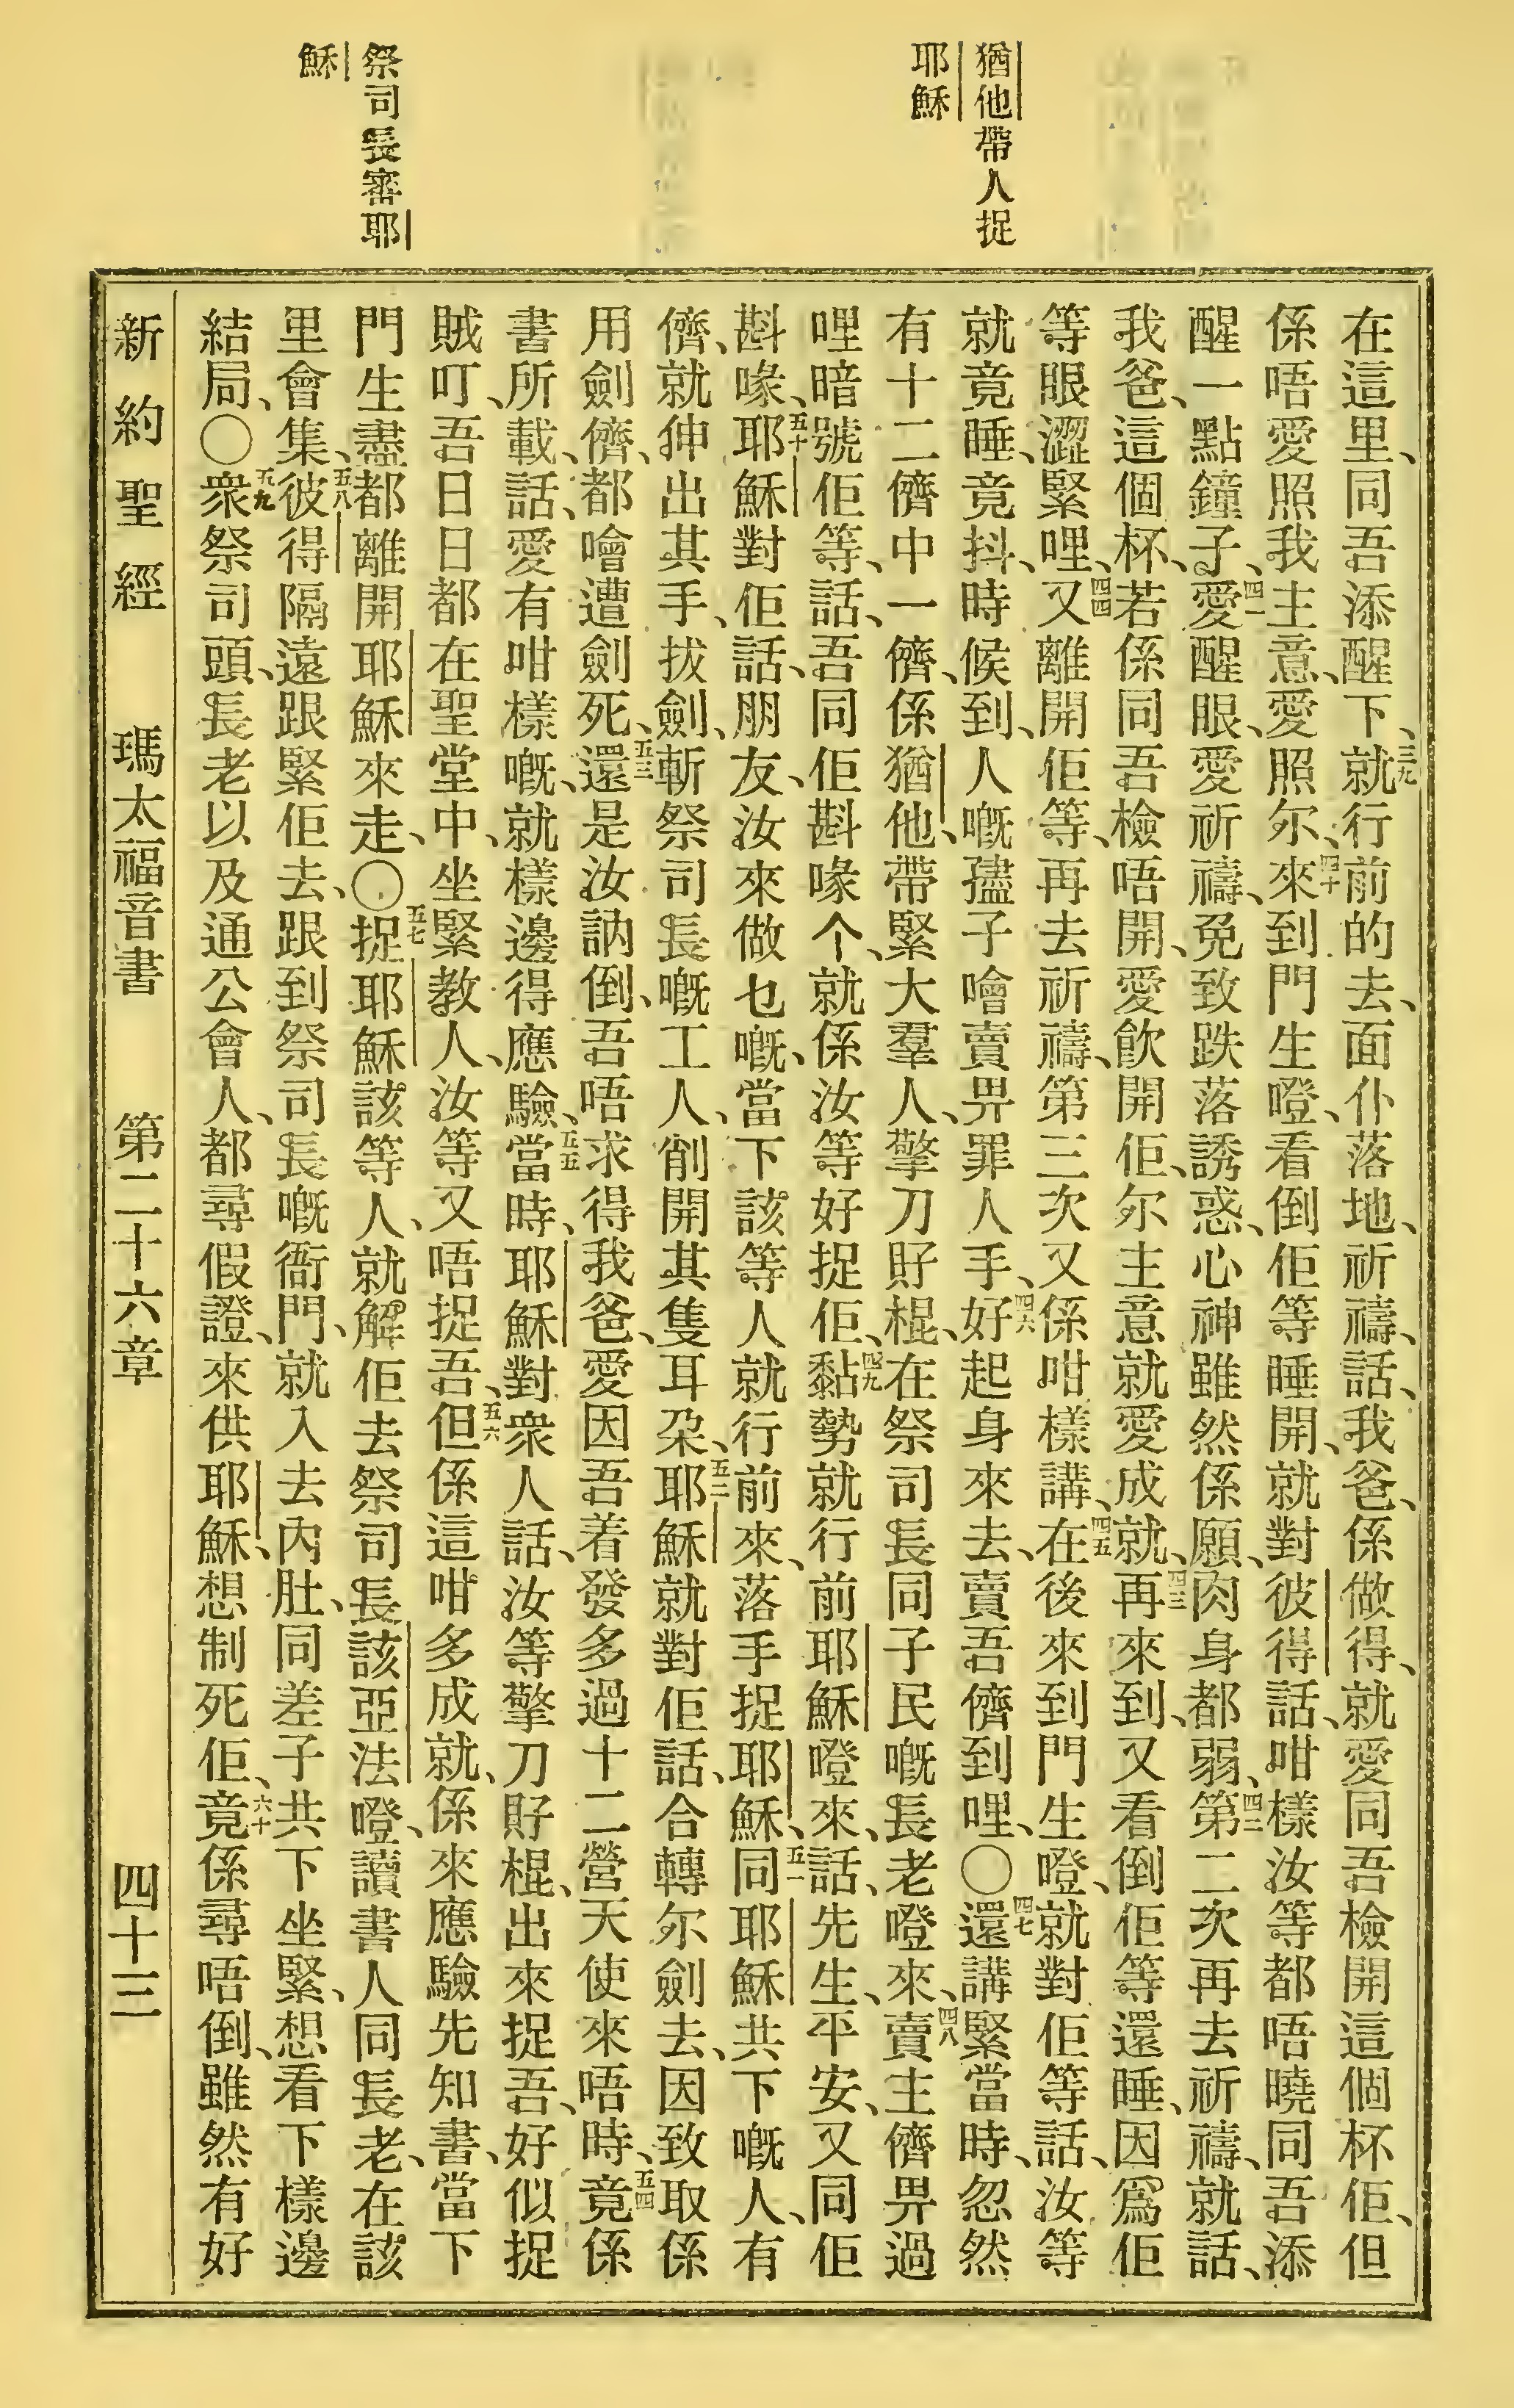 猶他帶人捉
耶穌
祭司長審耶
穌
在這里、同吾添醒下、三九就行前的去、面仆落地、祈禱、話、我爸、係做得、就愛同吾檢開這個杯佢、但
係唔愛照我主意、愛照尔、四十來到門生嶝、看倒佢等睡開、就對彼得話、咁樣汝等都唔曉同吾添
醒一點鐘子。四一愛醒眼、愛祈禱、免致跌落誘惑、心神雖然係願、肉身都弱、四二第二次再去祈禱、就話、
我爸、這個杯、若係同吾檢唔開、愛飲開佢、尔主意就愛成就、四三再來到、又看倒佢等還睡、因爲佢
等眼澀緊哩、四四又離開佢等、再去祈禱、第三次又係咁樣講、四五在後來到門生嶝、就對佢等話、汝等
就竟睡、竟抖、時候到、人嘅孻子噲賣畀罪人手、四六好起身來去、賣吾儕到哩、〇四七還講緊當時、忽然
有十二儕中一儕、係猶他、帶緊大羣人、擎刀㭒棍、在祭司長同子民嘅長老嶝來、四八賣主儕畀過
哩暗號佢等、話、吾同佢斟喙个、就係汝等好捉佢、四九黏勢就行前耶穌嶝來、話、先生、平安、又同佢
斟喙、五十耶穌對佢話、朋友、汝來做乜嘅、當下該等人就行前來、落手捉耶穌、五一同耶穌共下嘅人、有
儕、就伸出其手、拔劍、斬祭司長嘅工人、削開其隻耳朶、五二耶穌就對佢話、合轉尔劍去、因致取係
用劍儕、都噲遭劍死、五三還是汝訥倒、吾唔求得我爸、愛因吾着發多過十二營天使來唔時、五四竟係
書所載、話、愛有咁樣嘅、就樣邊得應驗。五五當時、耶穌對衆人話、汝等擎刀㭒棍、出來捉吾、好似捉
賊叮、吾日日都在聖堂中、坐緊教人、汝等又唔捉吾、五六但係這咁多成就、係來應驗先知書、當下
門生盡都離開耶穌來走、〇五七捉耶穌該等人、就解佢去祭司長該亞法嶝、讀書人同長老、在該
里會集、五八彼得隔遠跟緊佢去、跟到祭司長嘅衙門、就入去內肚、同差子共下坐緊、想看下樣邊
結局、〇五九衆祭司頭、長老以及通公會人、都尋假證、來供耶穌、想制死佢、六十竟係尋唔倒、雖然有好
新約聖經 瑪太福音書 第二十六章 四十三